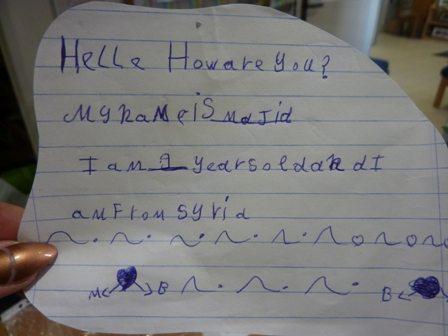 Hella Howareyou?
MynaMeiS Majid
I am 9 yearsoldandI
amFromsyria
M B B